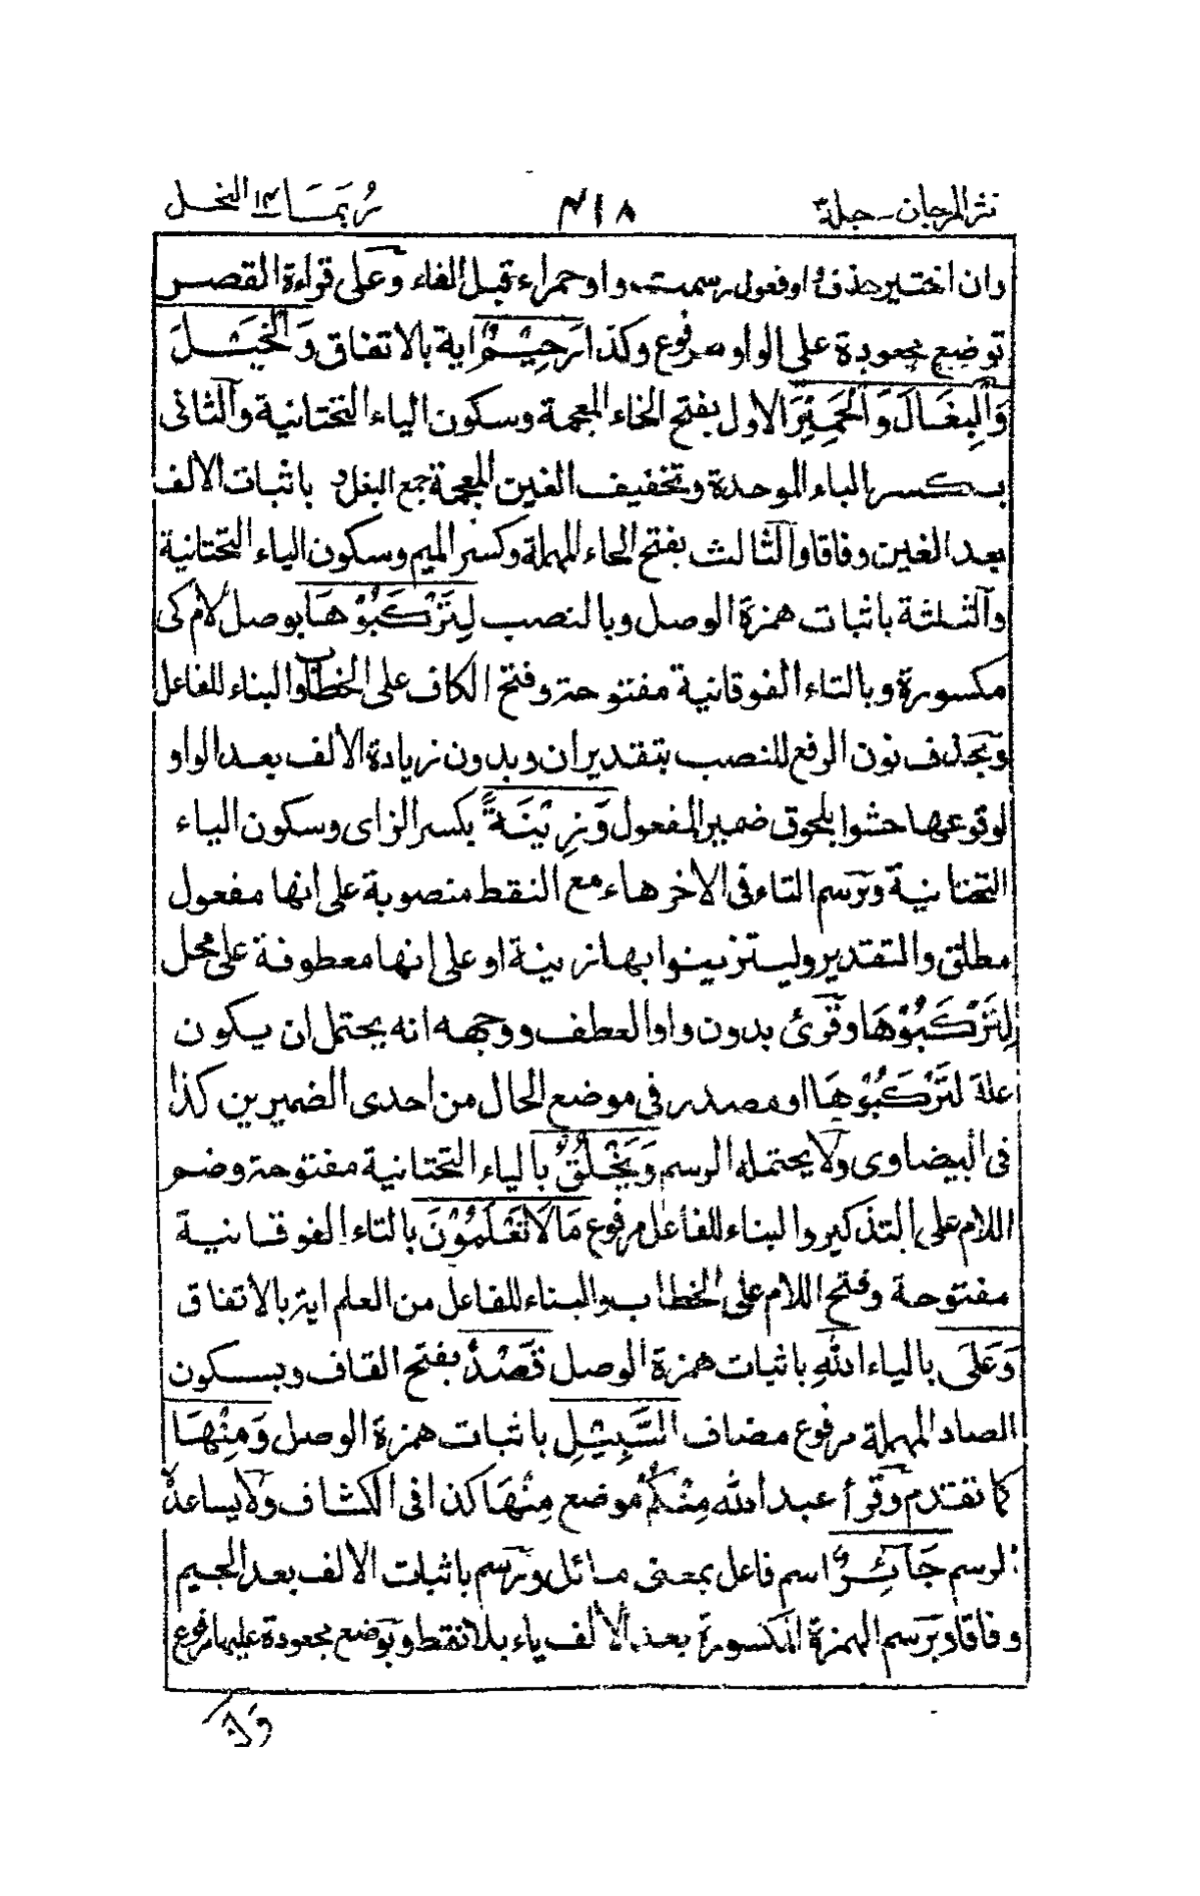 نثر المرجان - جلد ٣ ٤١٨ رُبَمَا ١٤ النحل
وان اختير حذف واو فعول رسمت واو حمراء قبل الفاء وعلى قراءة القصر
توضع مجعودة على الواو مرفوع وكذا رَحِيْمٌ اية بالاتفاق وَالْخَيْلَ
وَالْبِغَالَ وَالْحَمِيْرَ الاول بفتح الخاء المعجمة وسكون الياء التحتانية والثانى
بكسر الباء الموحدة وتخفيف الغين المعجمة جمع البغل و باثبات الالف
بعد الغين وفاقا والثالث بفتح الحاء المهملة وكسر الميم وسكون الياء التحتانية
والثلثة باثبات همزة الوصل وبالنصب لِتَرْكَبُوْهَا بوصل لام كى
مكسورة وبالتاء الفوقانية مفتوحة وفتح الكاف على الخطاب والبناء للفاعل
وبحذف نون الرفع للنصب بتقدير ان وبدون زيادة الالف بعد الواو
لوقوعها حشوا بلحوق ضمير المفعول وَزِيْنَةً بكسر الزاى وسكون الياء
التحتانية وبرسم التاء فى الاخر هاء مع النقط منصوبة على انها مفعول
مطلق والتقدير وليتزينوا بها زينة او على انها معطوفة على محل
لِتَرْكَبُوْهَا وقرئ بدون واو العطف ووجهه انه يحتمل ان يكون
علة لِتَرْكَبُوْهَا او مصدر فى موضع الحال من احدى الضميرين كذا
فى البيضاوى ولا يحتمله الرسم وَيَخْلُقُ بالياء التحتانية مفتوحة وضم
اللام على التذكير والبناء للفاعل مرفوع مَا لَا تَعْلَمُوْنَ بالتاء الفوقانية
مفتوحة وفتح اللام على الخطاب والبناء للفاعل من العلم اية بالاتفاق
وَعَلَى بالياء اللهِ باثبات همزة الوصل قَصْدُ بفتح القاف وبسكون
الصاد المهملة مرفوع مضاف السَّبِيْلِ باثبات همزة الوصل وَمِنْهَا
كما تقدم وقرأ عبد الله مِنْكُمْ موضع مِنْهَا كذا فى الكشاف ولا يساعده
الرسم جَآئِرٌ اسم فاعل بمعنى مائل ويرسم باثبات الالف بعد الجيم
وفاقا وبرسم الهمزة المكسورة بعد الالف ياء بلا نقط وبوضع مجعودة عليها مرفوع